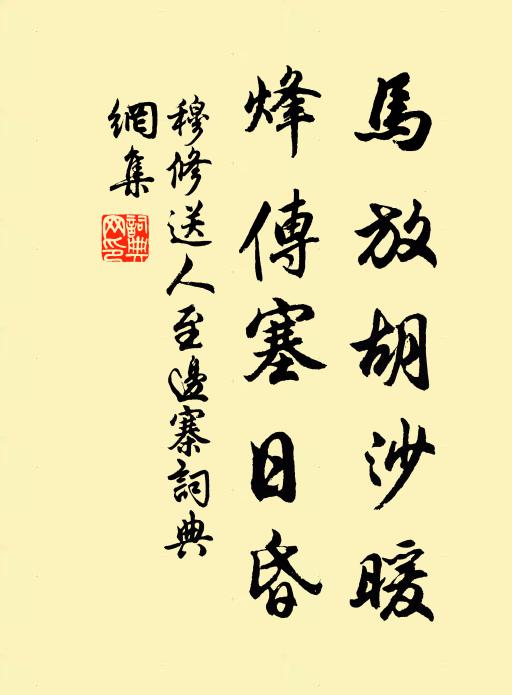 馬放胡沙暖
烽傳塞日昏
穆修送人至邊寨詞典
網集
詞典
网印